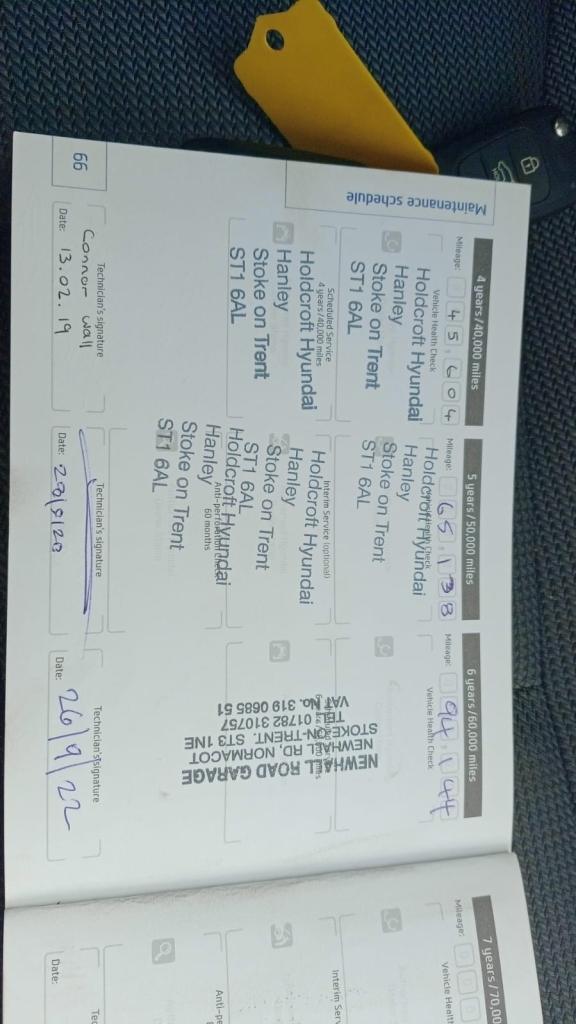 Maintenance schedule
4 years/40,000 miles
Mileage: 45,604
Vehicle Health Check
Holdcroft Hyundai
Hanley
Stoke on Trent
ST1 6AL
Scheduled Service
4 years/40,000 miles
Holdcroft Hyundai
Hanley
Stoke on Trent
ST1 6AL
Technician's signature
Connor Wall
Date: 13.02.19
66
5 years/50,000 miles
Mileage: 65,138
Holdcroft Hyundai
Hanley
Stoke on Trent
ST1 6AL
Interim Service (optional)
Holdcroft Hyundai
Hanley
Stoke on Trent
ST1 6AL
Anti-perforation check
60 months
Holdcroft Hyundai
Hanley
Stoke on Trent
ST1 6AL
Technician's signature
Date: 29/9/20
6 years/60,000 miles
Mileage: 94,144
Vehicle Health Check
NEWHALL ROAD GARAGE
NEWHALL RD, NORMACOT
STOKE-ON-TRENT. ST3 1NE
TEL: 01782 310757
VAT No. 319 0685 51
Technician's signature
Date: 26/9/22
7 years/70,00
Mileage:
Vehicle Healt
Interim Serv
Anti-pe
Tec
Date: